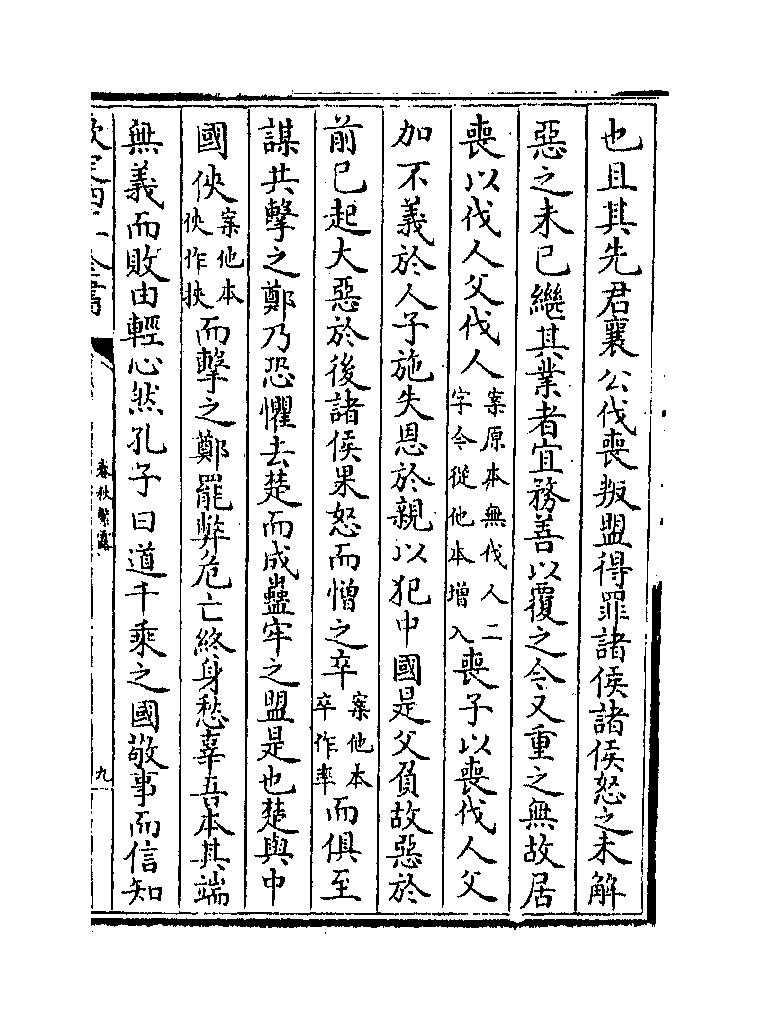 也且其先君襄公伐喪叛盟得罪諸侯諸侯怒之未解
惡之未已繼其業者宜務善以覆之今又重之無故居
喪以伐人父伐人案原本無伐人二字今從他本增入喪子以喪伐人父
加不義於人子施失恩於親以犯中國是父負故惡於
前已起大惡於後諸侯果怒而憎之卒案他本卒作率而俱至
謀共擊之鄭乃恐懼去楚而成蠱牢之盟是也楚與中
國俠案他本俠作挾而擊之鄭罷弊危亡終身愁辜吾本其端
無義而敗由輕心然孔子曰道千乘之國敬事而信知
欽定四庫全書
春秋繁露
九